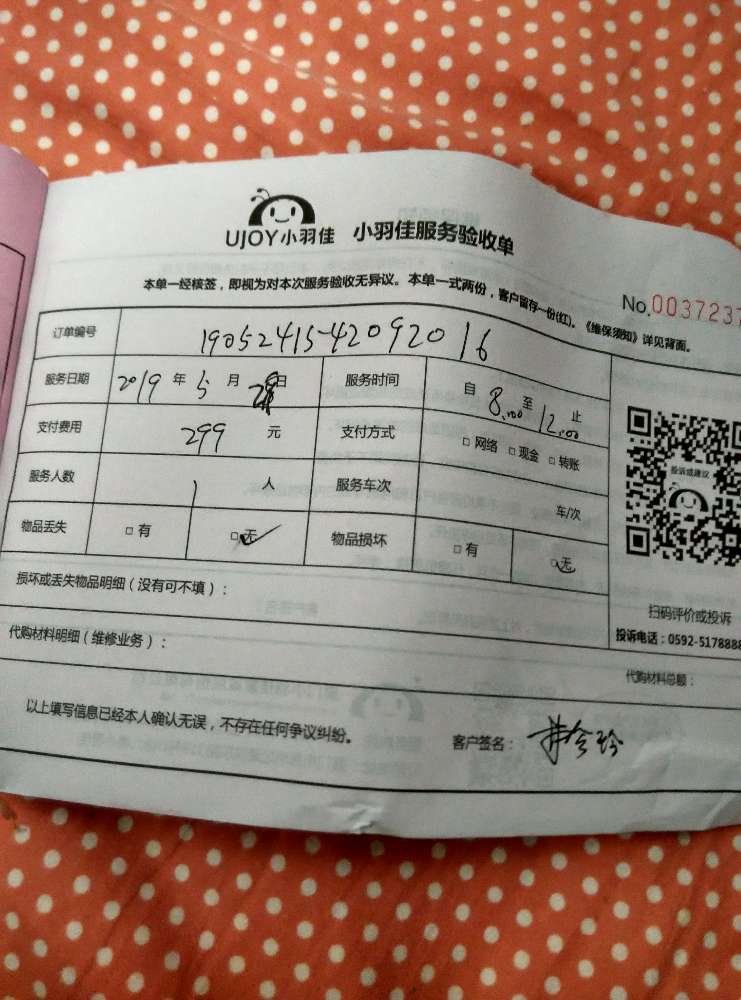 UJOY小羽佳 小羽佳服务验收单
本单一经核签，即视为对本次服务验收无异议。本单一式两份，客户留存一份(红)。《维保须知》详见背面。
No.0037237
订单编号 1905241542092016
服务日期 2019 年 5 月 日 服务时间 自 8:00 至 12:00 止
支付费用 299 元 支付方式 □ 网络 □ 现金 □ 转账
服务人数 1 人 服务车次 车/次
物品丢失 □ 有 □ 无 物品损坏 □ 有 □ 无
投诉或建议
扫码评价或投诉
投诉电话：0592-5178888
损坏或丢失物品明细（没有可不填）：
代购材料明细（维修业务）：
代购材料总额：
以上填写信息已经本人确认无误，不存在任何争议纠纷。 客户签名：